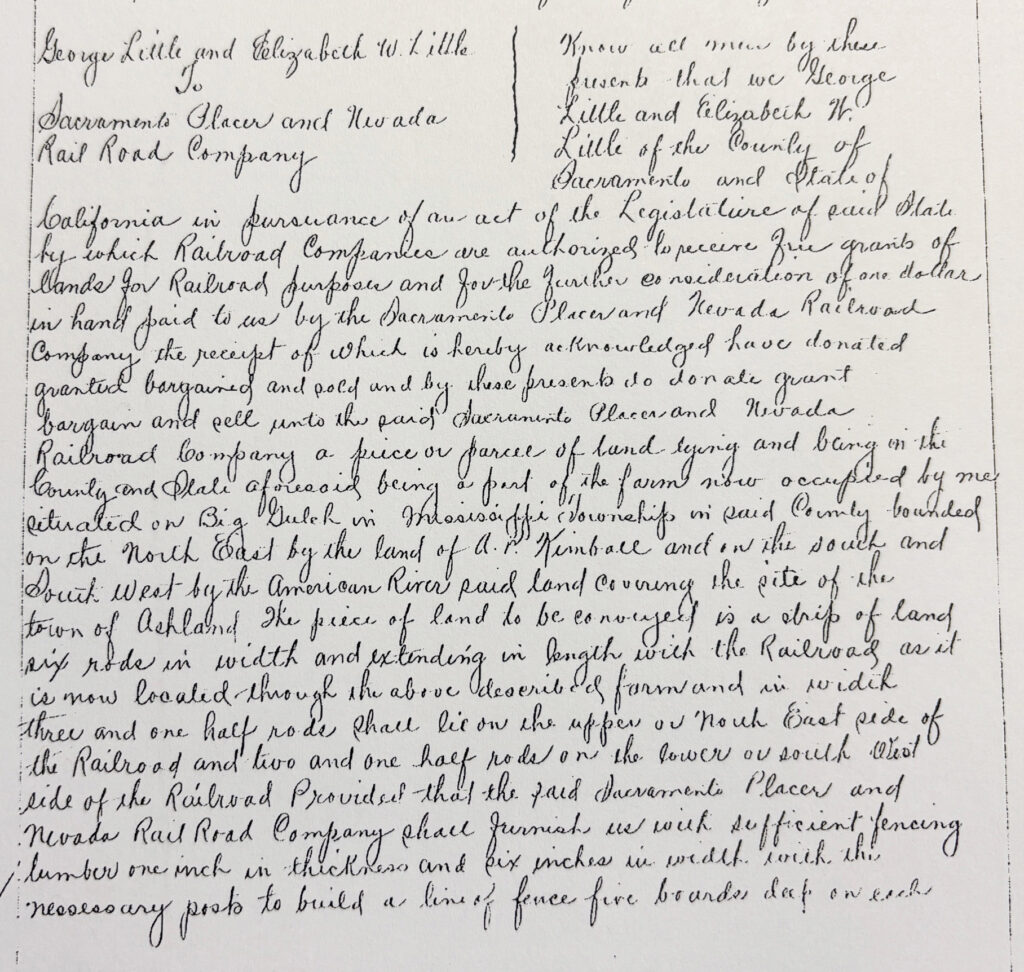 George Little and Elizabeth W. Little
To
Sacramento Placer and Nevada
Rail Road Company
Know all men by these
presents that we George
Little and Elizabeth W.
Little of the County of
Sacramento and State of
California in pursuance of an act of the Legislature of said State
by which Railroad Companies are authorized to receive free grants of
lands for Railroad purposes and for the further consideration of one dollar
in hand paid to us by the Sacramento Placer and Nevada Railroad
Company the receipt of which is hereby acknowledged have donated
granted bargained and sold and by these presents do donate grant
bargain and sell unto the said Sacramento Placer and Nevada
Railroad Company a piece or parcel of land lying and being in the
County and State aforesaid being a part of the farm now occupied by me
situated on Big Gulch in Mississippi Township in said County bounded
on the North East by the land of A. P. Kimball and on the south and
South West by the American River said land covering the site of the
town of Ashland The piece of land to be conveyed is a strip of land
six rods in width and extending in length with the Railroad as it
is now located through the above described farm and in width
three and one half rods shall lie on the upper or North East side of
the Railroad and two and one half rods on the lower or south West
side of the Railroad Provided that the said Sacramento Placer and
Nevada Rail Road Company shall furnish us with sufficient fencing
lumber one inch in thickness and six inches in width with the
nessessary posts to build a line of fence five boards deep on each